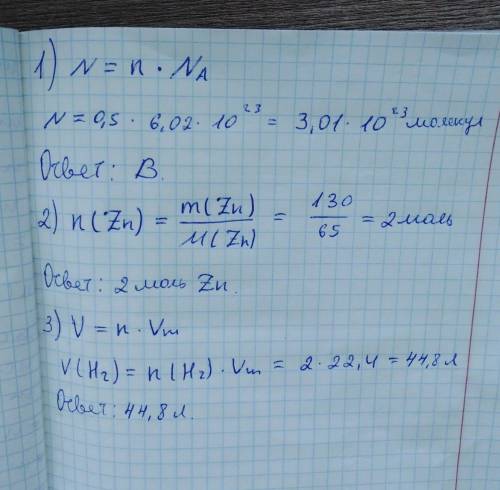 1) N = n · N_A
N = 0,5 · 6,02 · 10²³ = 3,01 · 10²³ молекул
Ответ: В.
2) n(Zn) = m(Zn)/M(Zn) = 130/65 = 2 моль
Ответ: 2 моль Zn.
3) V = n · Vm
V(H₂) = n(H₂) · Vm = 2 · 22,4 = 44,8 л
Ответ: 44,8 л.